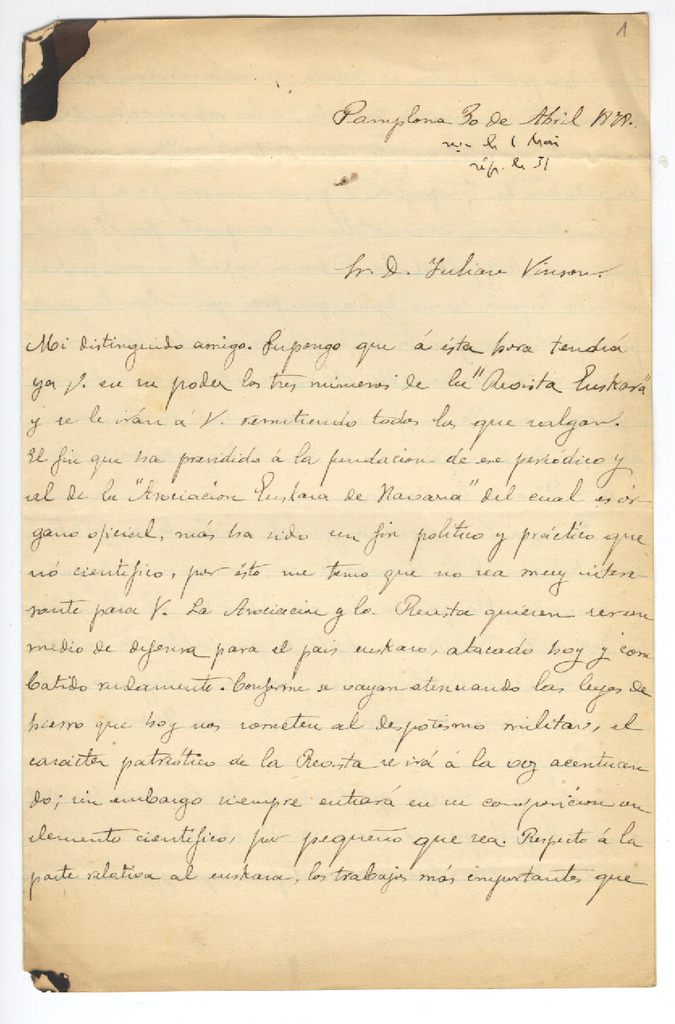 1
Pamplona 30 de Abril 1878.
le 1 Mai
rép. le 31
Sr. D. Julian Vinson.
Mi distinguido amigo. Supongo que á ésta hora tendrá
ya V. en su poder los tres números de la "Revista Euskara"
y se le irán á V. remitiendo todos los que salgan.
El fin que ha presidido á la fundacion de ese periódico y
al de la "Asociacion Euskara de Navarra" del cual es ór-
gano oficial, más ha sido un fin político y práctico que
nó científico, por ésto me temo que no sea muy intere-
sante para V. La Asociacion y la Revista quieren ser un
medio de defensa para el pais euskaro, atacado hoy y com
batido rudamente. Conforme se vayan atenuando las leyes de
hierro que hoy nos someten al despotismo militar, el
carácter patriótico de la Revista se irá á la vez acentuan
do; sin embargo siempre entrará en su composicion un
elemento científico, por pequeño que sea. Respecto á la
parte relativa al euskara, los trabajos más importantes que